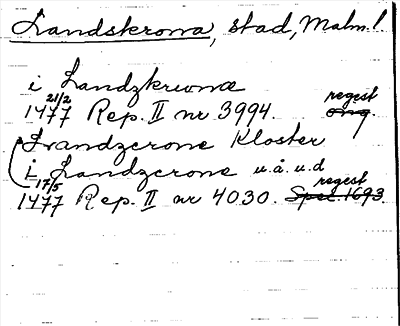 Landskrona, stad, Malm. l
i Landzkrwnæ
1477 21/2 Rep. II nr 3994. regest orig.
Landzcrone Kloster
i Landzcrone u.å.u.d
1477 17/5 Rep. II nr 4030. regest Spec. 1693.